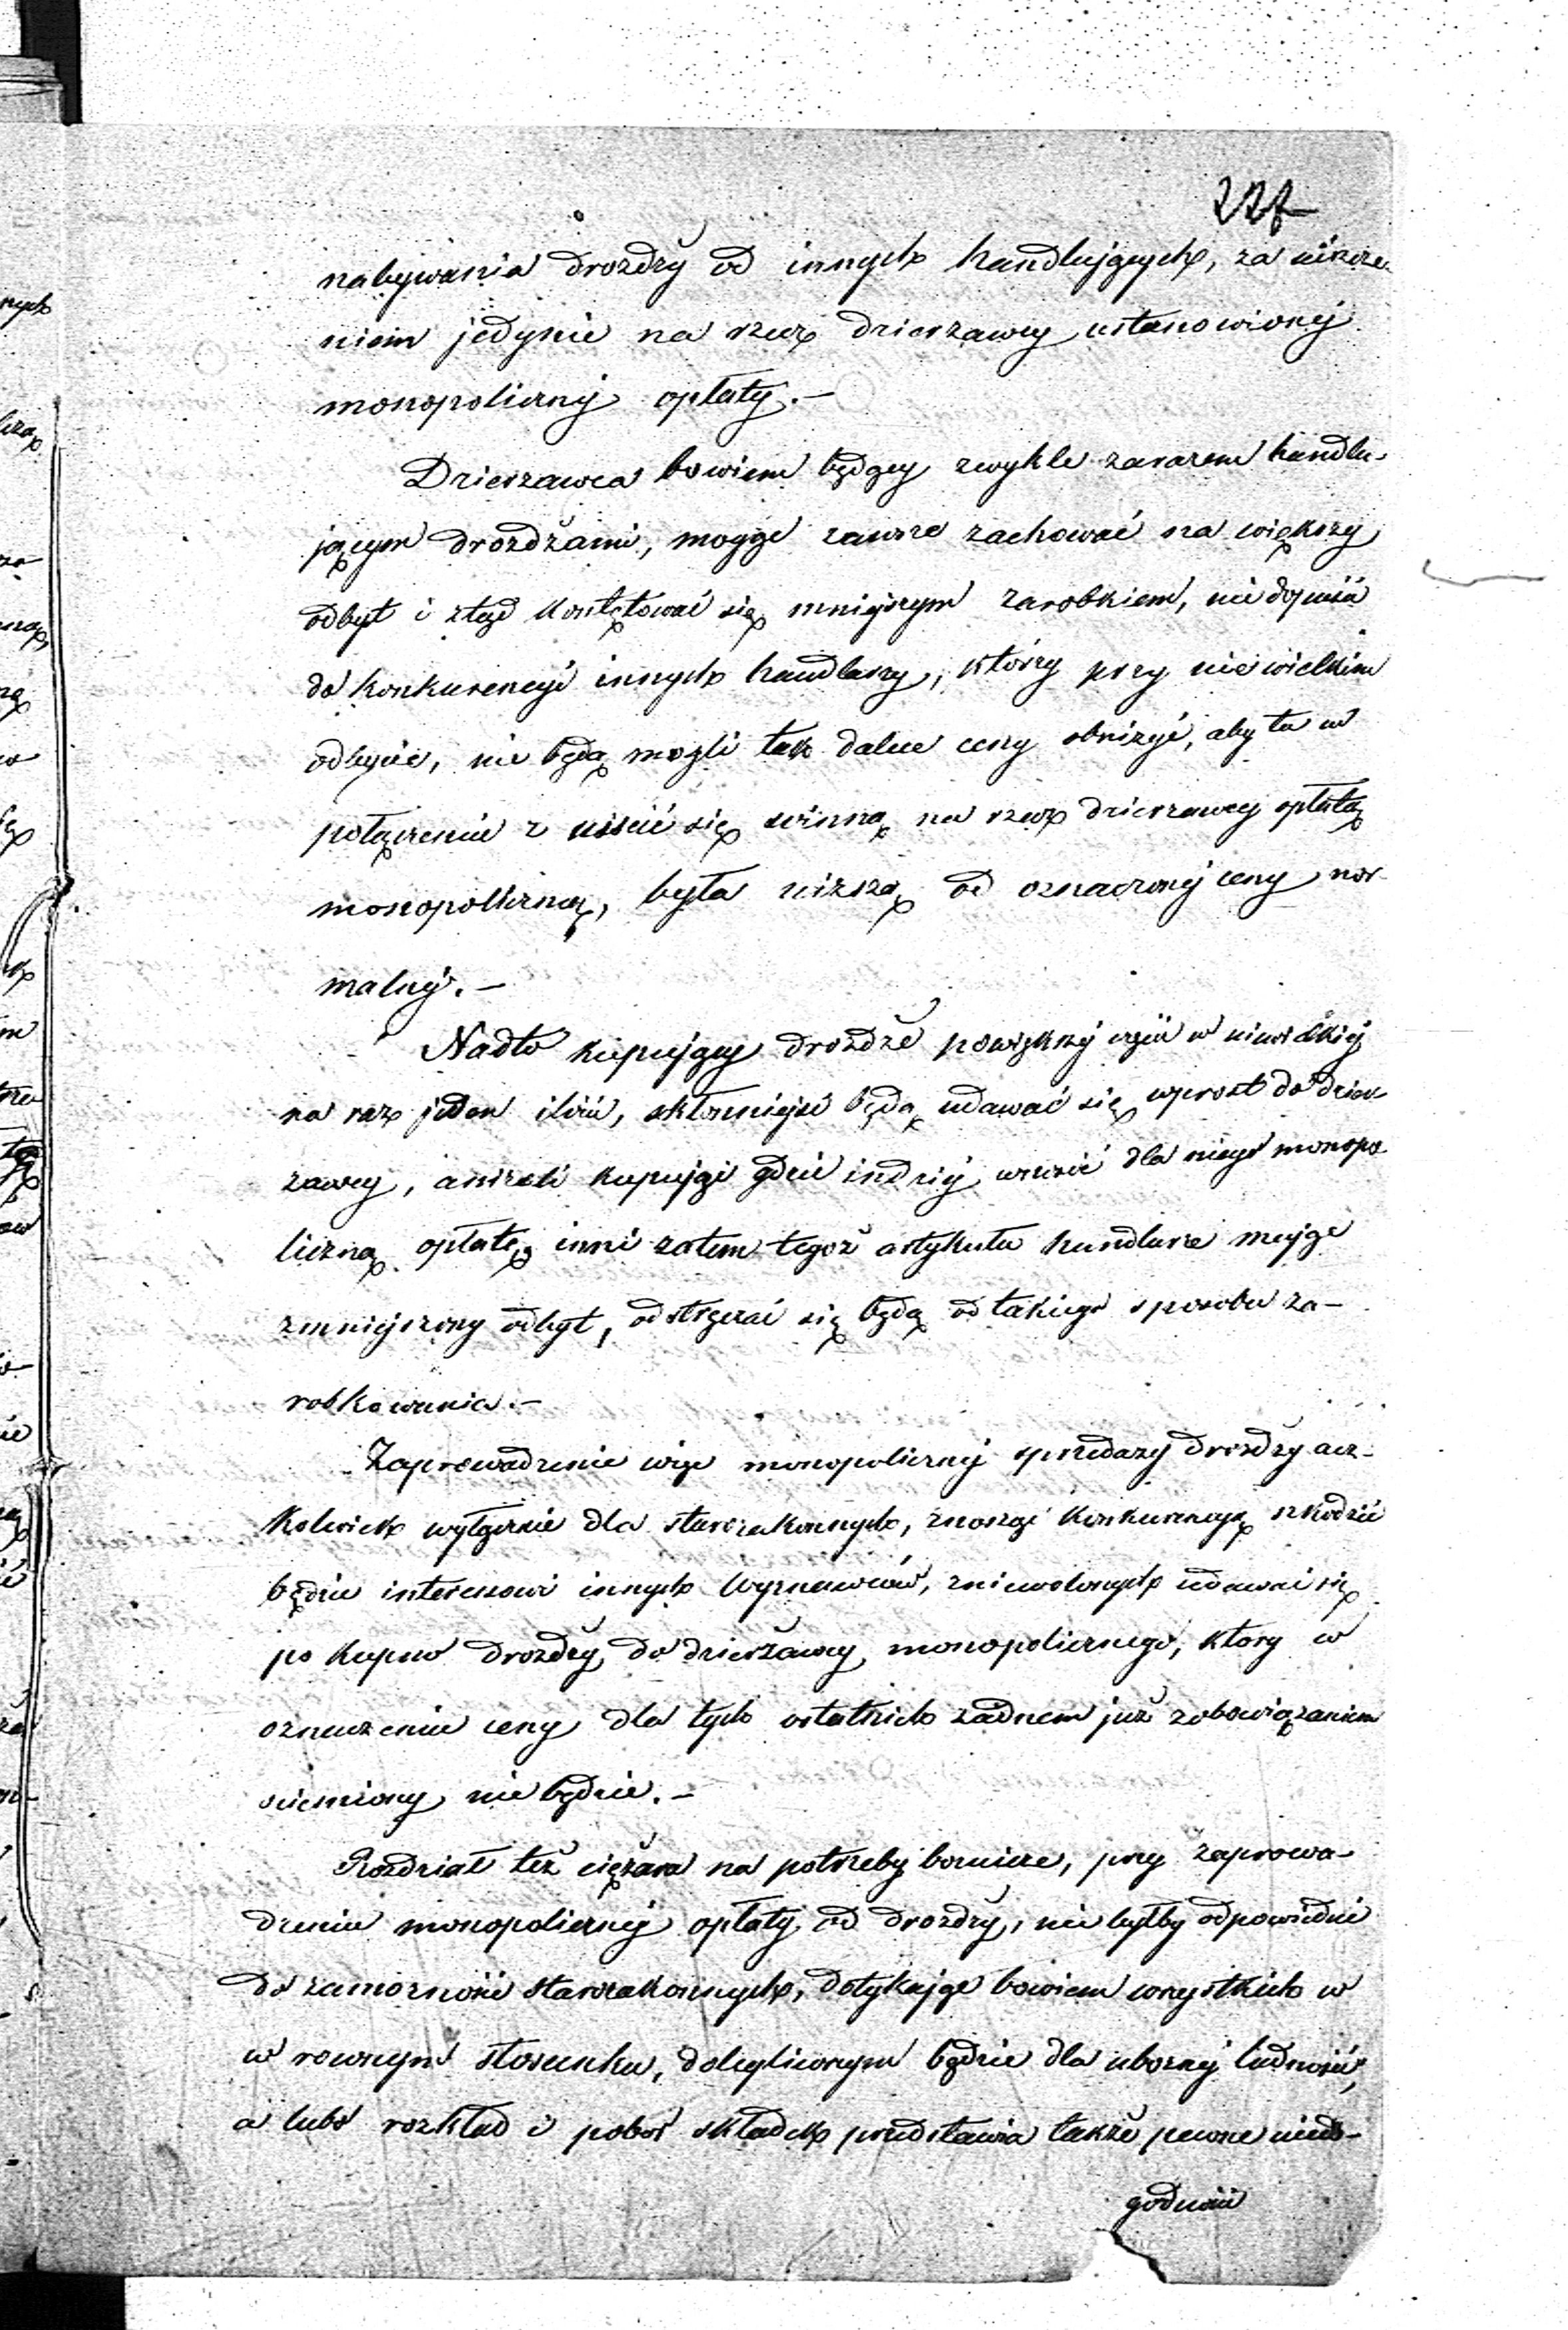 227
nabywania drożdży od innych handlujących, za uiszcze-
niem jedynie na rzecz dzierżawcy ustanowionej
monopolicznej opłaty.—
Dzierżawca bowiem będący zwykle zarazem handlu-
jącym drożdżami, mogąc zawsze zachować na większy
odbyt i ztąd kontętować się mniejszym zarobkiem, nie dopuśa
do konkurencyi innych handlarzy, którzy przy niewielkim
odbycie, nie będą mogli tak dalece ceny obniżyć, aby ta w
połączeniu z uiścić się winną na rzecz dzierżawcy opłatą
monopoliczną, była niższą od oznaczonej ceny nor-
malnej.—
Nadto kupujący drożdże powiększej części w niewielkiej
na raz jeden ilości, skłonniejsi będą udawać się wprost do dzier-
żawcy, aniżeli kupując gdzie indziej uiścić dla niego monopo-
liczną opłatę, inni zatem tegoż artykułu handlarze mając
zmniejszony odbyt, odstręczać się będą od takiego sposobu za-
robkowania.—
Zaprowadzenie więc monopolicznej sprzedaży drożdży acz-
kolwiek wyłącznie dla starozakonnych, znosząc konkurencyę szkodzić
będzie interessowi innych wyznawców, zniewolonych udawać się
po kupno drożdży, do dzierżawcy monopolicznego, który w
oznaczeniu ceny dla tych ostatnich żadnem już zobowiązaniem
ścieśniony nie będzie.—
Rozdział też ciężaru na potrzeby bożnicze, przy zaprowa-
dzeniu monopolicznej opłaty od drożdży, nie byłby odpowiedni
do zamożności starozakonnych, dotykając bowiem wszystkich w
w równym stosunku, dolegliwszym będzie dla uboższej ludności,
a lubo rozkład i pobór składek przedstawia także pewne niedo-
godności